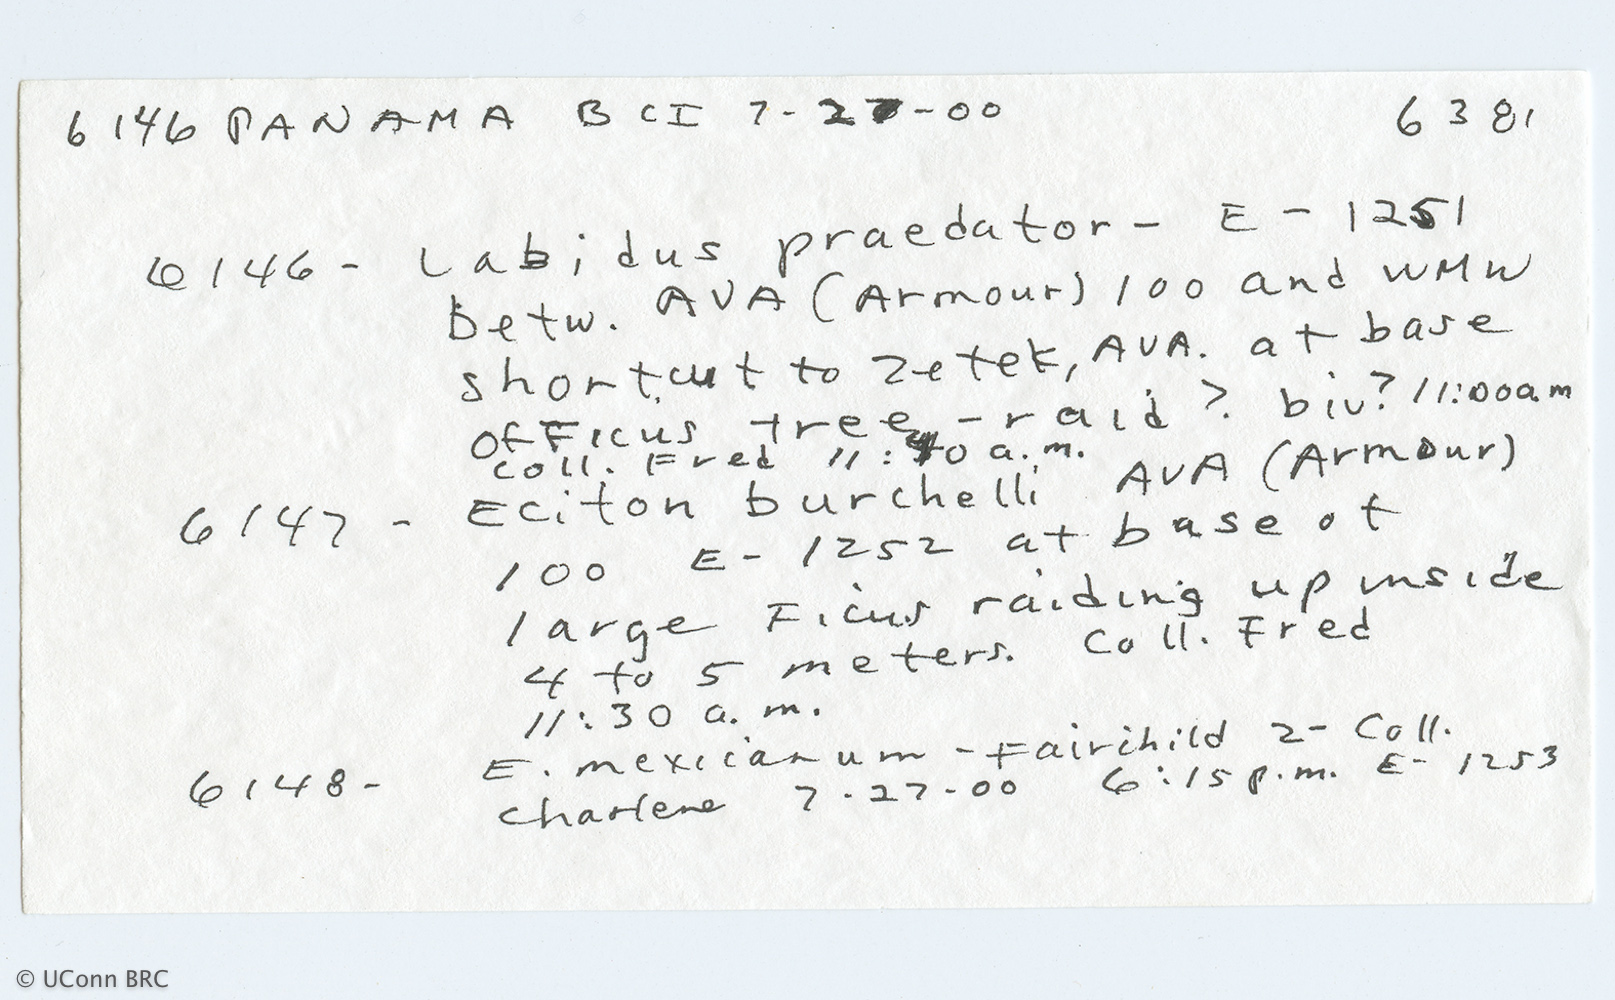 6146 PANAMA BCI 7-27-00 6381
6146 - Labidus praedator - E - 1251
Betw. AVA (Armour) 100 and WMW
shortcut to Zetek, AVA. at base
of Ficus tree - raid? biv? 11:00am
coll. Fred 11:40 a.m.
6147 - Eciton burchelli AVA (Armour)
100 E- 1252 at base of
large Ficus raiding up inside
4 to 5 meters. Coll. Fred
11:30 a.m.
6148 - E. mexicanum - Fairchild 2- Coll.
Charlene 7-27-00 6:15 p.m. E- 1253
© UConn BRC